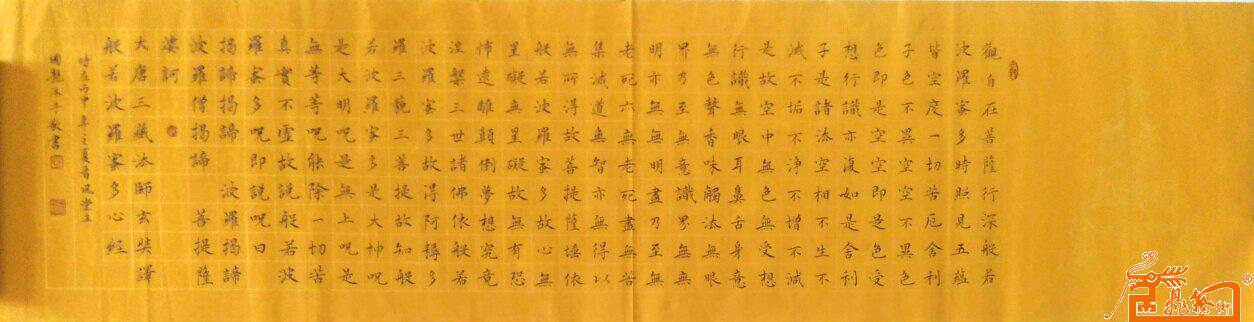 觀自在菩薩行深般若
波羅蜜多時照見五蘊
皆空度一切苦厄舍利
子色不異空空不異色
色即是空空即是色受
想行識亦復如是舍利
子是諸法空相不生不
滅不垢不淨不增不減
是故空中無色無受想
行識無眼耳鼻舌身意
無色聲香味觸法無眼
界乃至無意識界無無
明亦無無明盡乃至無
老死亦無老死盡無苦
集滅道無智亦無得以
無所得故菩提薩埵依
般若波羅蜜多故心無
罣礙無罣礙故無有恐
怖遠離顛倒夢想究竟
涅槃三世諸佛依般若
波羅蜜多故得阿耨多
羅三藐三菩提故知般
若波羅蜜多是大神呪
是大明呪是無上呪是
無等等呪能除一切苦
真實不虛故說般若波
羅蜜多呪即說呪曰
揭諦揭諦 波羅揭諦
波羅僧揭諦 菩提薩
婆訶
大唐三藏法師玄奘譯
般若波羅蜜多心經
時在丙申年之夏書風堂主
國龍木子敬書